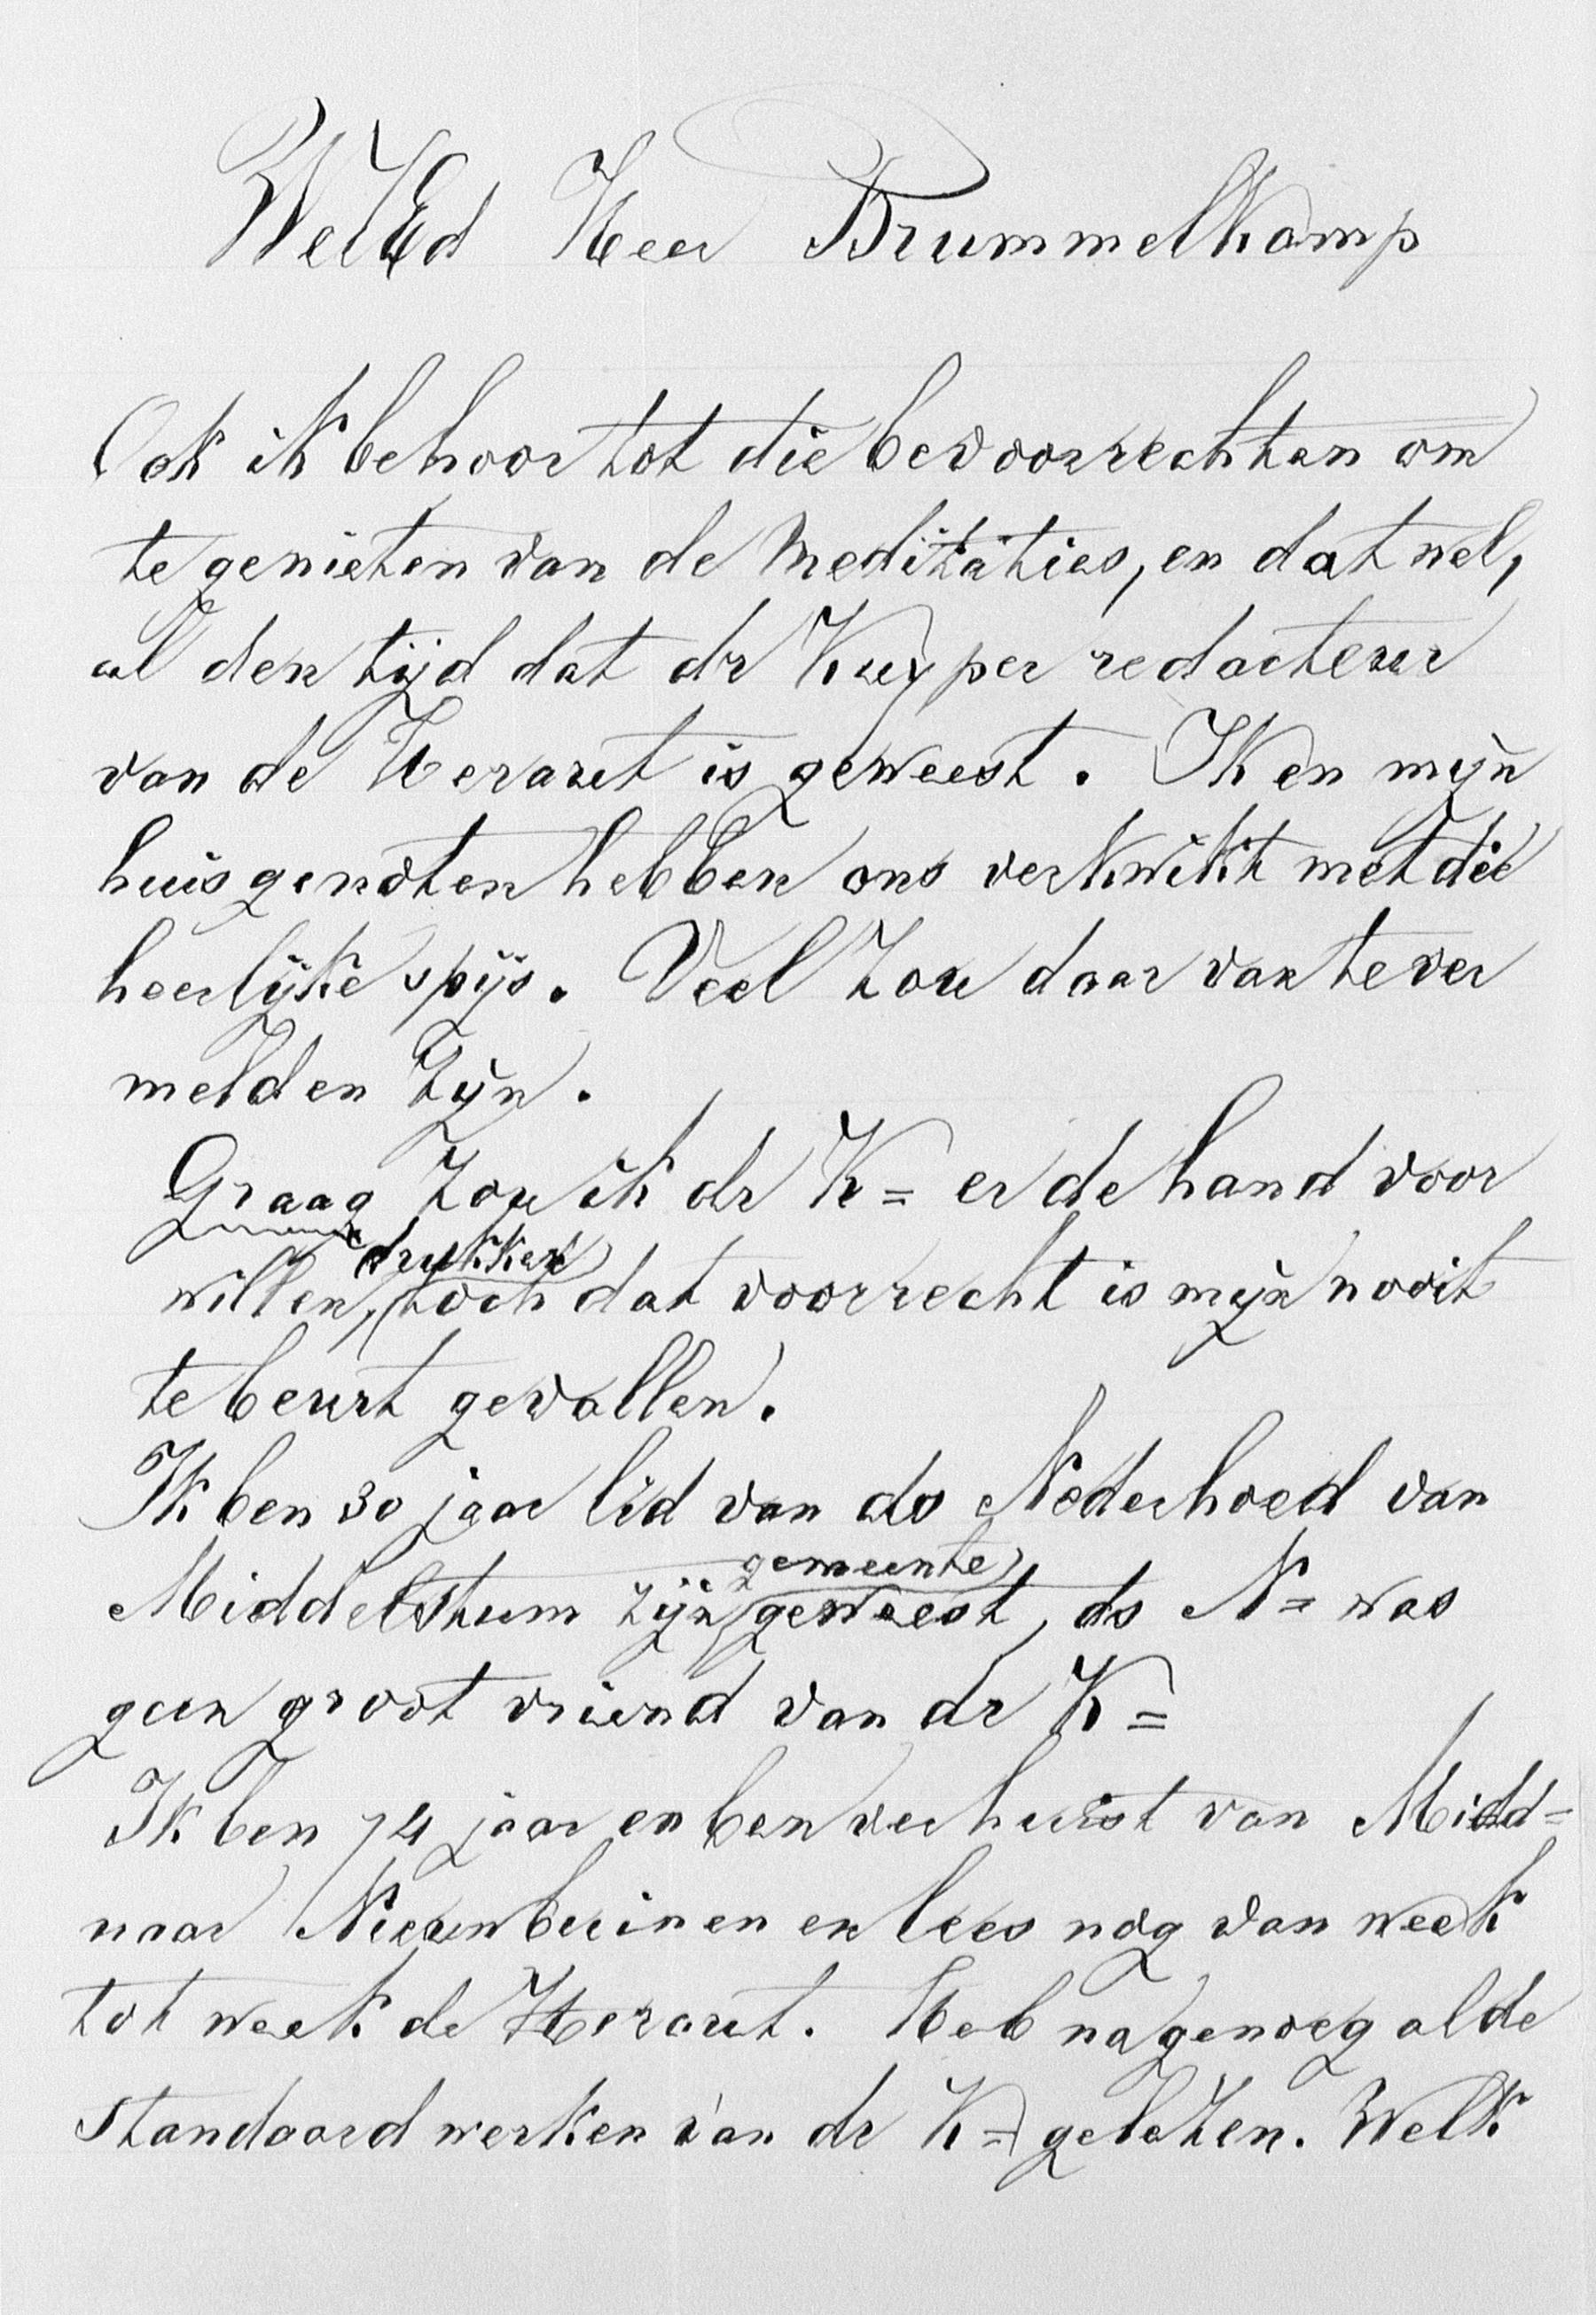 WelEd Heer Brummelkamp
Ook ik behoor tot die bevoorrechten om
te genieten van de Meditaties, en dat wel,
al den tijd dat dr Kuyper redacteur
van de Heraut is geweest. Ik en mijn
huisgenoten hebben ons verkwikt met die
heerlijke spijs. Veel zou daar van te ver
melden zijn.
Graag zou ik dr K= er de hand voor
drukken
willen, toch dat voorrecht is mijn nooit
te beurt gevallen.
Ik ben 30 jaar lid van ds Nederhoed van
gemeente
Middelstum zijn geweest, ds N= was
geen groot vriend van dr K=
Ik ben 74 jaar en ben verhuist van Midd=
naar Nieuwbuinen en lees nog van week
tot week de Heraut. Heb nagenoeg al de
standaard werken van dr K= gelezen. Welk